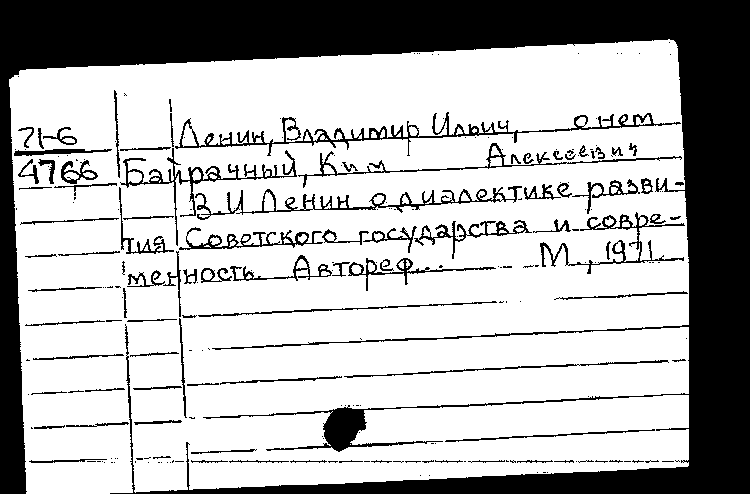 71-6 Ленин, Владимир Ильич, о нем
4766 Байрачный, Ким Алексеевич
В.И Ленин о диалектике разви-
тия Советского государства и совре-
менность. Автореф... М., 1971.